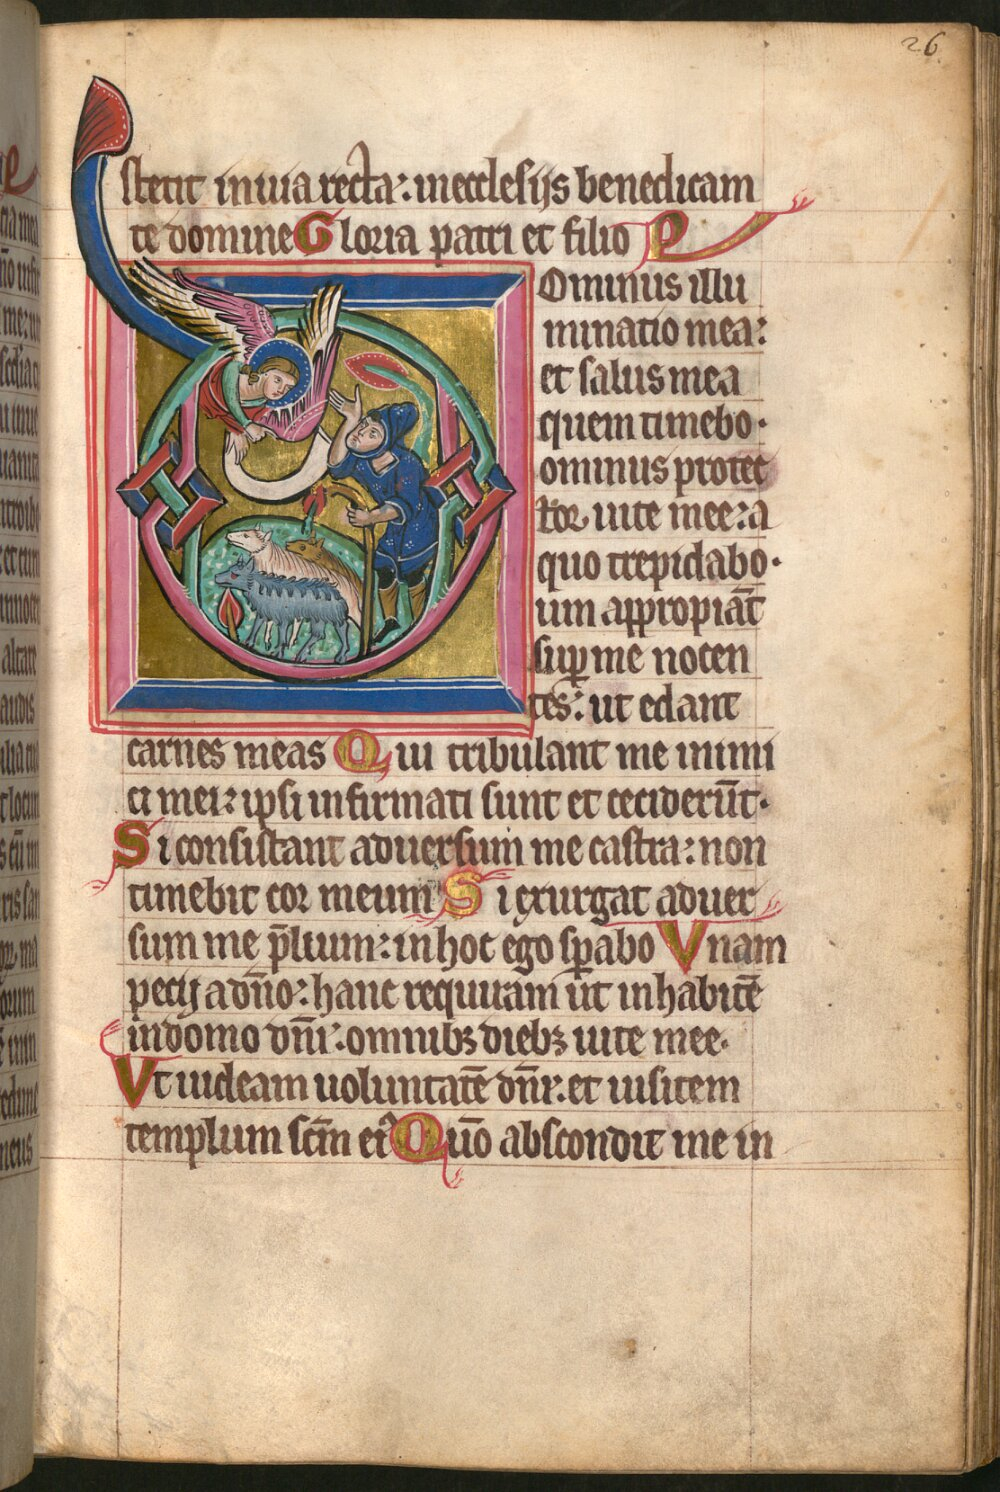 26
stetit in uia recta: in ecclesijs benedicam
te domine Gloria patri et filio P
Ominus illu
minatio mea:
et salus mea
quem timebo.
ominus protec
tor uite mee: a
quo trepidabo.
um appropiāt
sup̱ me nocen
tes: ut edant
carnes meas Qui tribulant me inimi
ci mei: ipsi infirmati sunt et cecider̄ut.
Si consistant aduersum me castra: non
timebit cor meum Si exurgat aduer
sum me p̄lium: in hoc ego sp̱abo Vnam
pecij a dn̄o: hanc requiram ūt inhabitē
in domo dn̄i: omnibꝫ diebꝫ uite mee.
Vt uideam uoluntatē dn̄i: et uisitem
templum sc̄m ei᷒ Quō abscondit me in